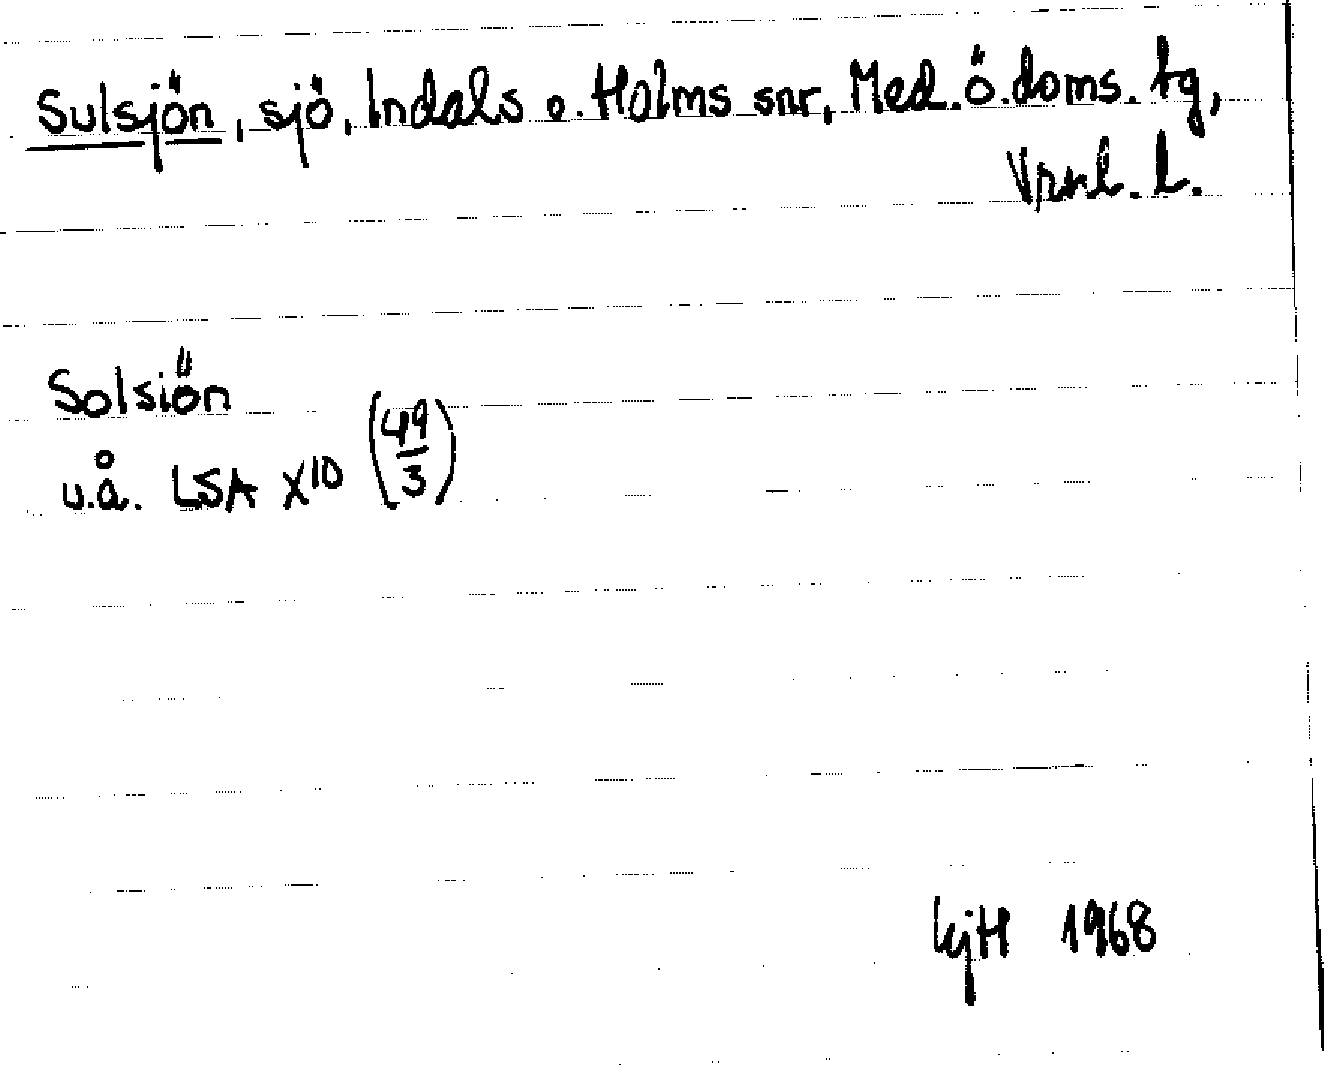 Sulsjön, sjö, Indals o. Holms snr, Med. ö. doms. tg,
Vrnl. l.
Solsiön
u.å. LSA X¹⁰ (49/3)
KjH 1968